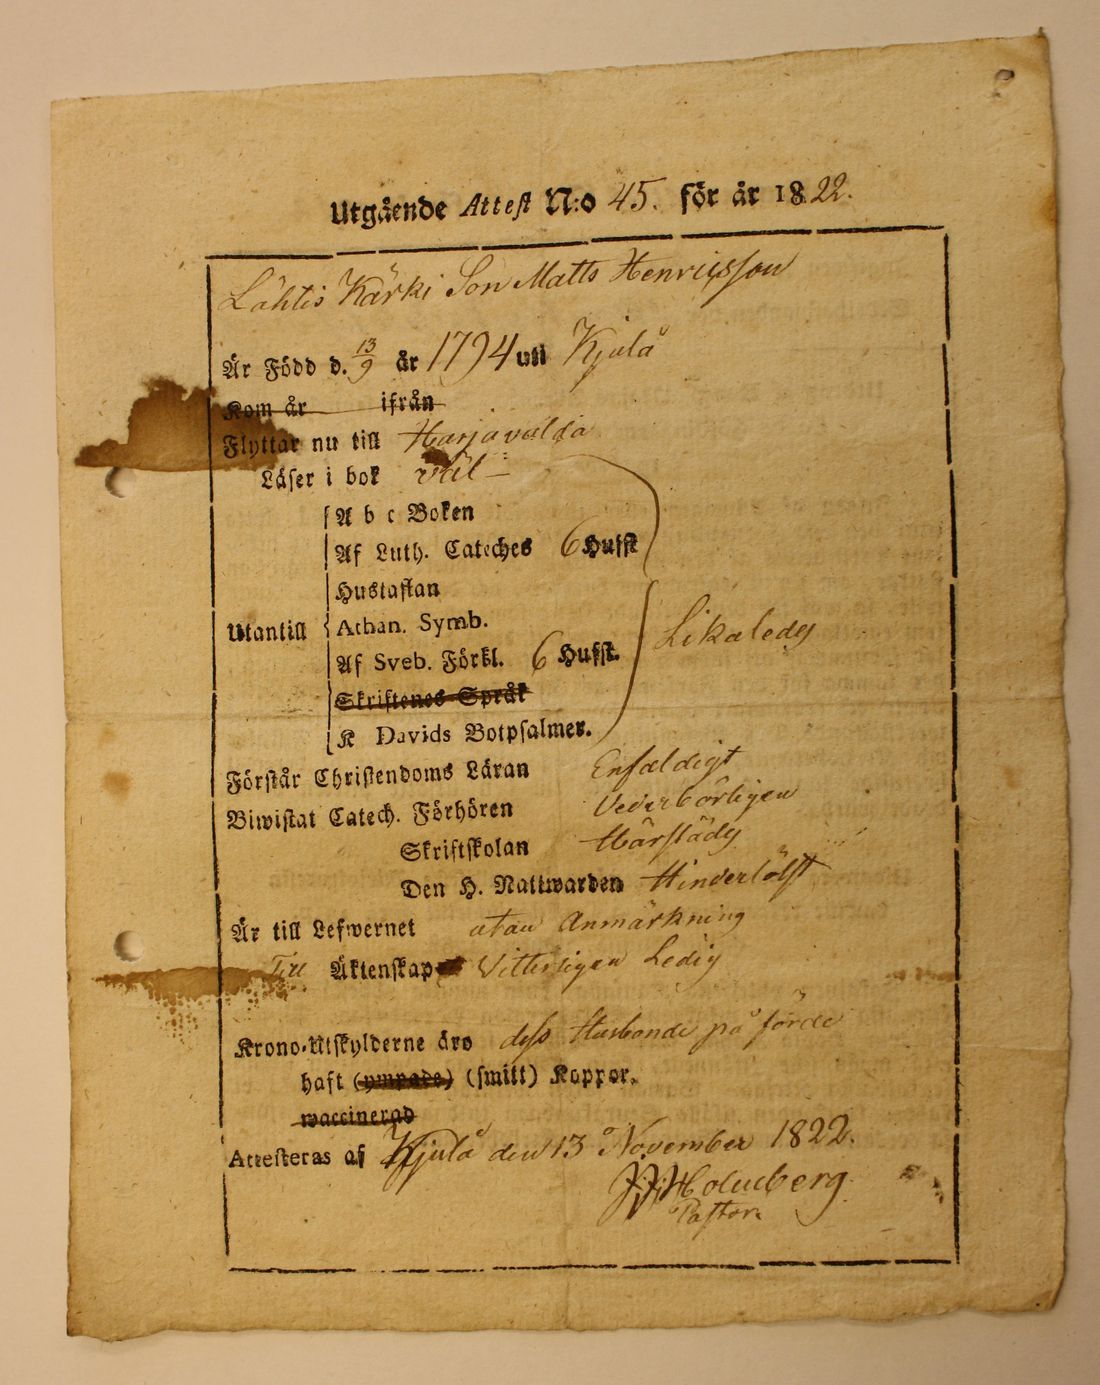 Utgående Attest N:o 45. för år 1822.
Lähtis Kärki Son Matts Henricsson
Är Född d. 13/9 år 1794 uti Kjulå
Kom år ifrån
Flyttar nu till Harjavalda
Läser i bok väl
A b c Boken
Af Luth. Cateches 6 Hufst
Hustaflan
Utantill Athan. Symb.
Likaledes
Af Sveb. Förkl. 6 Hufst.
Skriftenes Språk
K Davids Botpsalmer.
Förstår Christendoms Läran Enfaldigt
Biwistat Catech. Förhören Vederbörligen
Skriftskolan Härstädes
Den H. Nattwarden Hinderlöst
Är till Lefwernet utan Anmärkning
Till Äktenskap Vitterligen Ledig
Krono-Utskylderne äro dess Husbonde på förde
haft (ympade) (smitt) Koppor.
waccinerad
Attesteras af Kjulå den 13 November 1822.
Holmberg
Pastor.